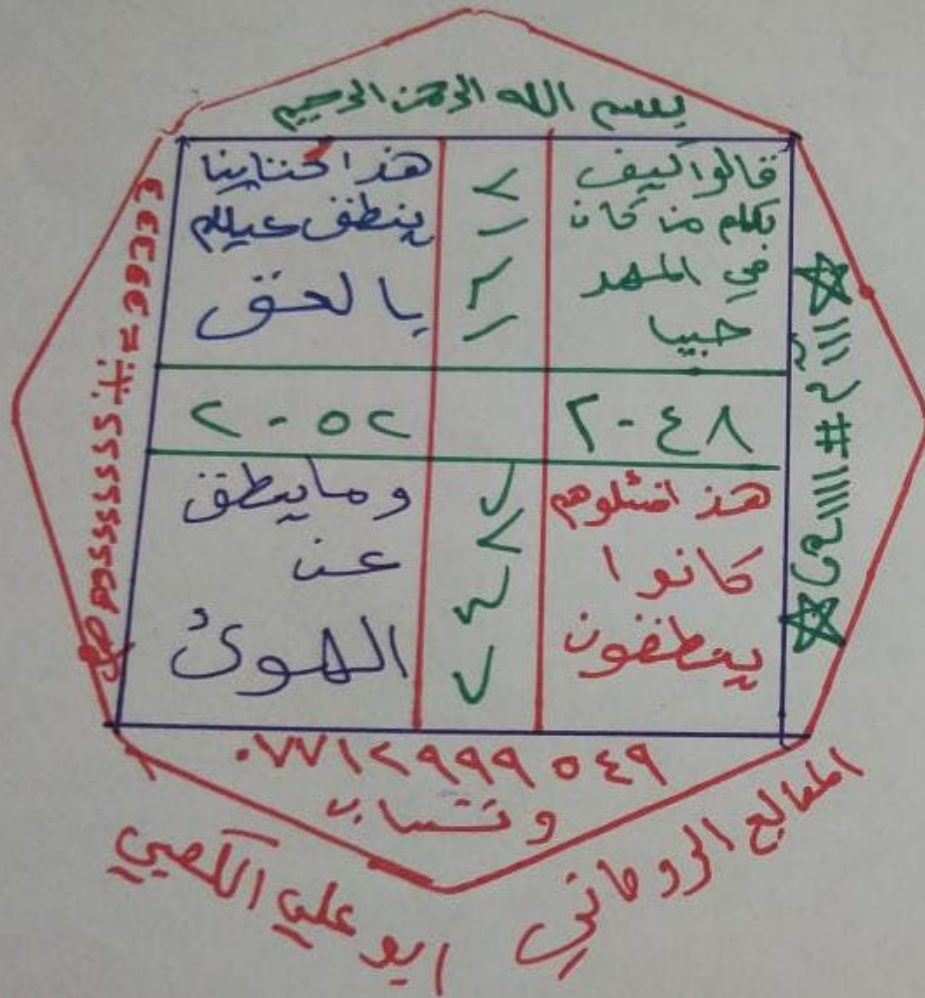 بسم الله الرحمن الرحيم
قالوا كيف
نكلم من كان
في المهد
حبيا
٢
١
٢
١
هذا كتابنا
ينطق عيلكم
بالحق
٢٠٤٨
٢٠٥٢
هذ
كانوا
ينطفون
٧
٨
٤
٧
وما ينطق
عن
الهوئ
٠٧٧١٢٩٩٩٥٤٩
وتساب
المعالج الروحاني
ابو علي الكعبي